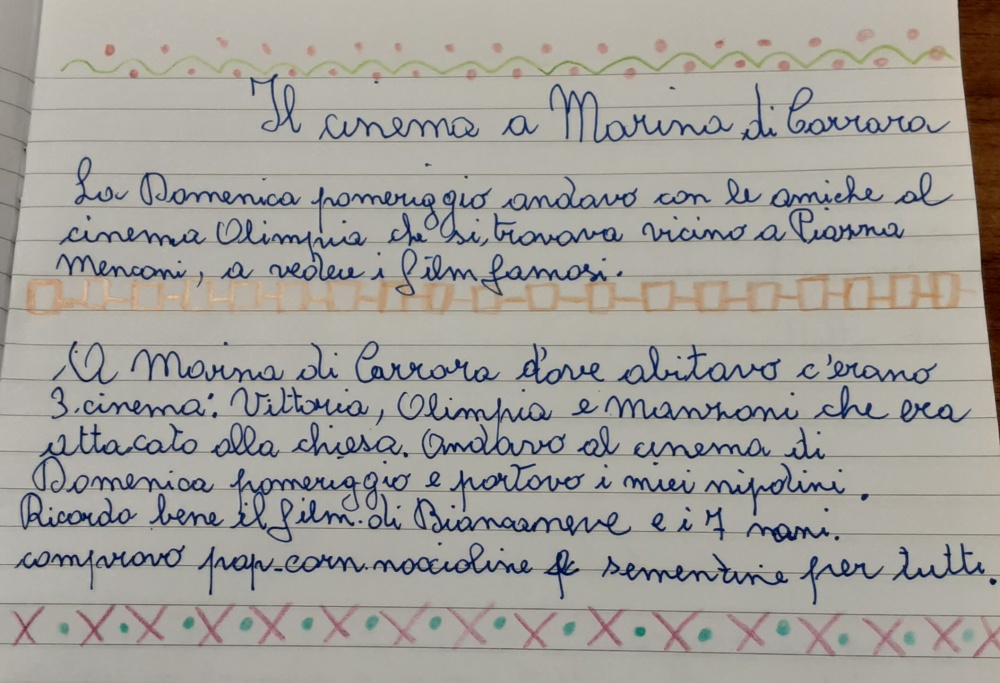 Il cinema a Marina di Carrara
La Domenica pomeriggio andavo con le amiche al
cinema Olimpia che si trovava vicino a Piazza
Menconi, a vedere i film famosi.
A Marina di Carrara d'ove abitavo c'erano
3 cinema: Vittoria, Olimpia e Manzoni che era
attaccato alla chiesa. Andavo al cinema di
Domenica pomeriggio e portavo i miei nipotini.
Ricordo bene il film di Biancaneve e i 7 nani.
compravo pop-corn noccioline e sementine per tutti.